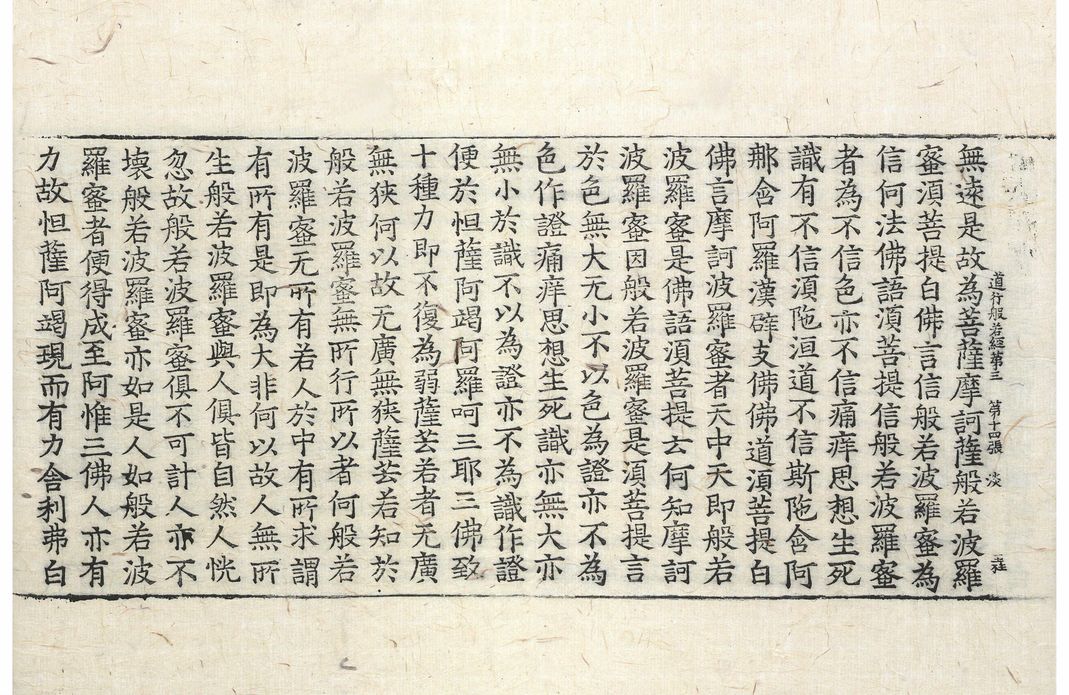 道行般若経第三　第十四張　淡
無遠是故為菩薩摩訶薩般若波羅
蜜湏菩提白佛言信般若波羅蜜為
信何法佛語湏菩提信般若波羅蜜
者為不信色亦不信痛痒思想生死
識有不信湏陁洹道不信斯陁含阿
那含阿羅漢辟支佛佛道湏菩提白
佛言摩訶波羅蜜者天中天即般若
波羅蜜是佛語湏菩提云何知摩訶
波羅蜜因般若波羅蜜是湏菩提言
於色無大无小不以色為證亦不為
色作證痛痒思想生死識亦無大亦
無小於識不以為證亦不為識作證
便於怛薩阿竭阿羅呵三耶三佛致
十種力即不復為弱薩芸若者无廣
無狹何以故无廣無狹薩芸若知於
般若波羅蜜無所行所以者何般若
波羅蜜无所有若人於中有所求謂
有所有是即為大非何以故人無所
生般若波羅蜜與人俱皆自然人恍
忽故般若波羅蜜俱不可計人亦不
壞般若波羅蜜亦如是人如般若波
羅蜜者便得成至阿惟三佛人亦有
力故怛薩阿竭現而有力舍利弗白